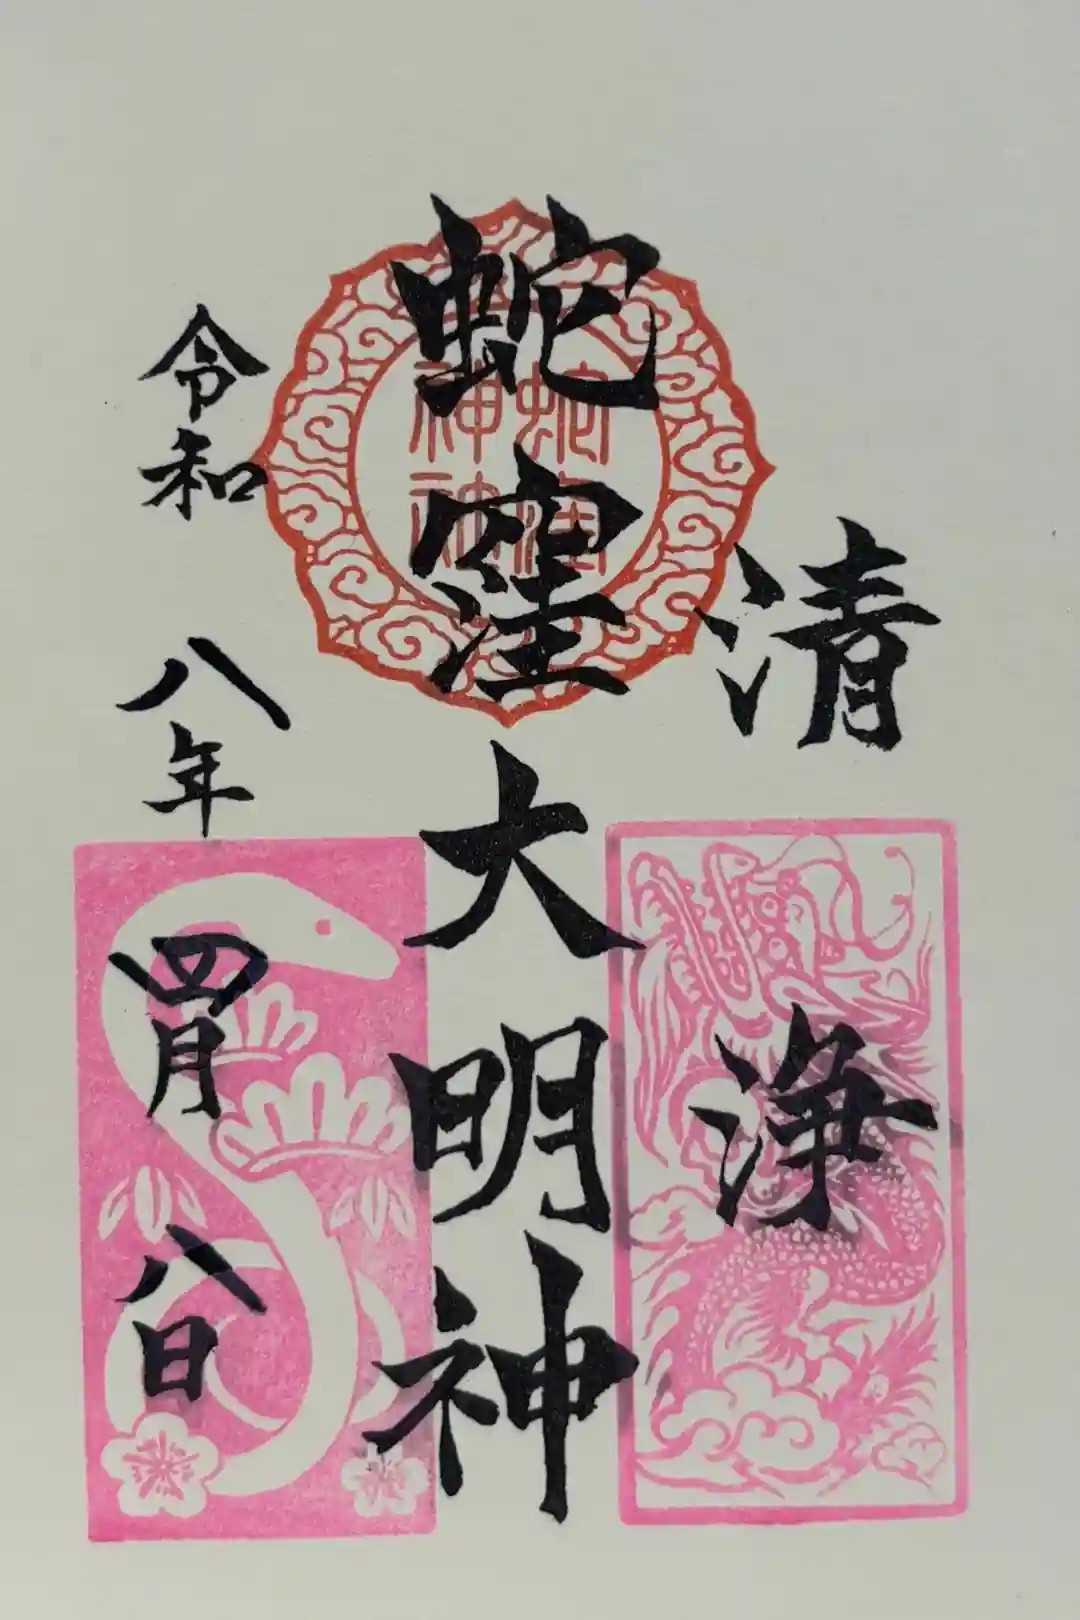 清浄
蛇窪大明神
蛇窪
神社
令和八年四月八日